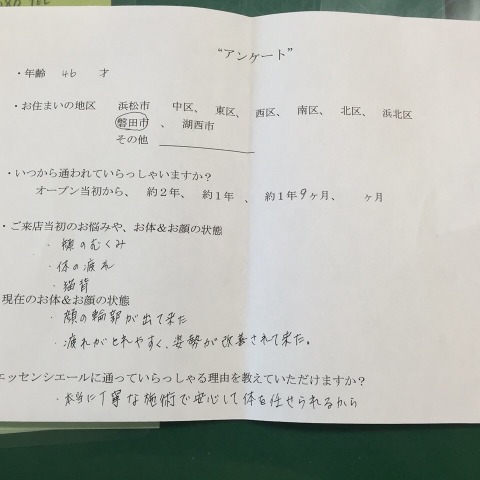 "アンケート"
・年齢 46 才
・お住まいの地区 浜松市 中区、 東区、 西区、 南区、 北区、 浜北区
磐田市 、 湖西市
その他
・いつから通われていらっしゃいますか？
オープン当初から、 約２年、 約１年 、 約１年9ヶ月、 ヶ月
・ご来店当初のお悩みや、お体＆お顔の状態
・顔のむくみ
・体の疲れ
・猫背
現在のお体＆お顔の状態
・顔の輪郭が出て来た
・疲れがとれやすく、姿勢が改善されて来た。
エッセンシエールに通っていらっしゃる理由を教えていただけますか？
・本当に丁寧な施術で安心して体を任せられるから